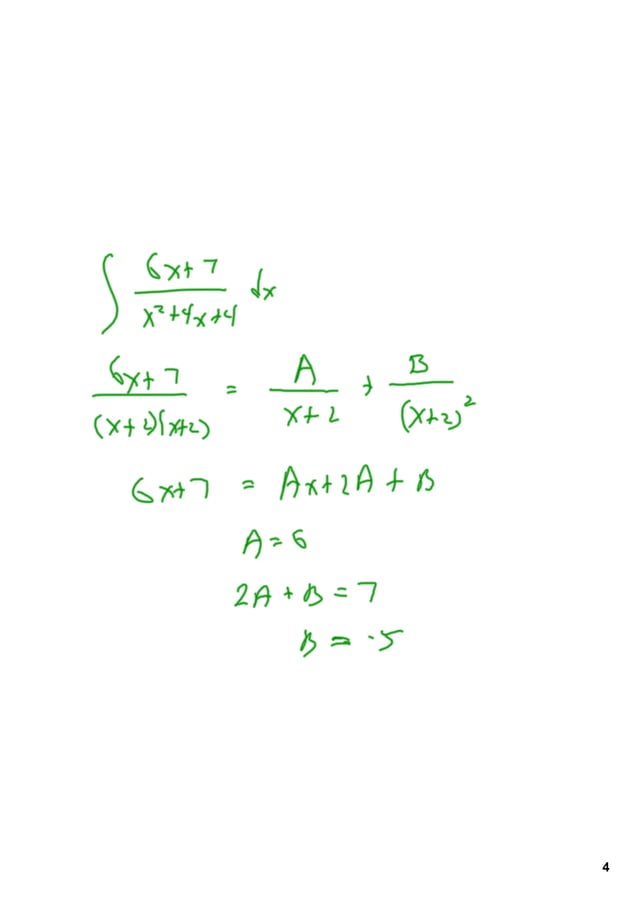 ∫ (6x+7)/(x²+4x+4) dx
(6x+7)/((x+2)(x+2)) = A/(x+2) + B/(x+2)²
6x+7 = Ax+2A+B
A=6
2A+B=7
B=-5
4